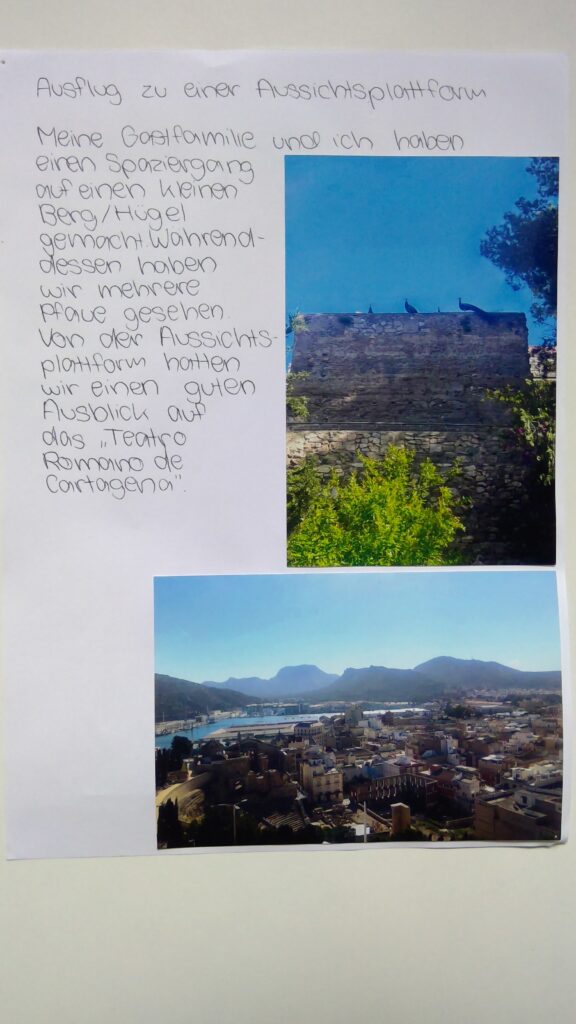 Ausflug zu einer Aussichtsplattform
Meine Gastfamilie und ich haben
einen Spaziergang
auf einen kleinen
Berg/Hügel
gemacht. Während-
dessen haben
wir mehrere
Pfaue gesehen.
Von der Aussichts-
plattform hatten
wir einen guten
Ausblick auf
das „Teatro
Romano de
Cartagena".